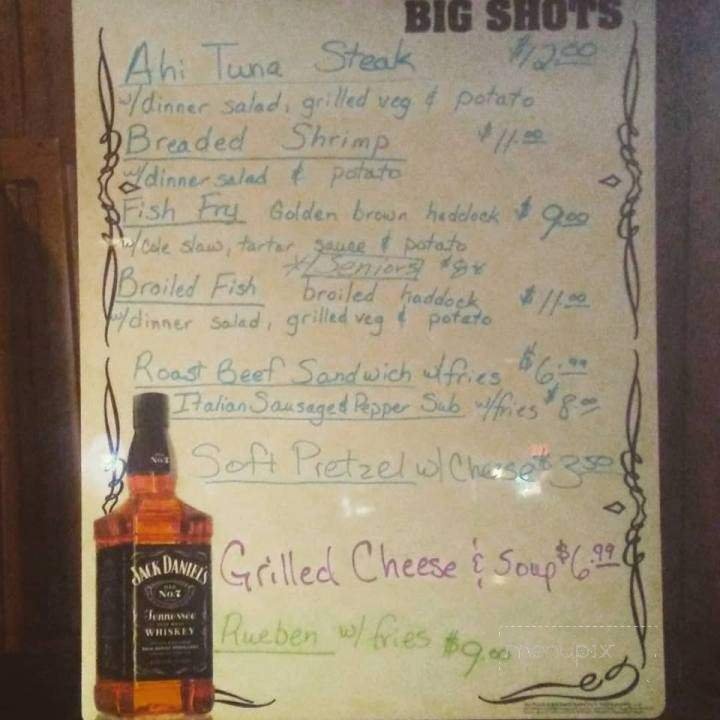 BIG SHOTS
Ahi Tuna Steak $12.00
w/dinner salad, grilled veg & potato
Breaded Shrimp $11.00
w/dinner salad & potato
Fish Fry Golden brown haddock $9.00
w/cole slaw, tartar sauce & potato
*Seniors $8*
Broiled Fish broiled haddock $11.00
w/dinner salad, grilled veg & potato
Roast Beef Sandwich w/fries $6.99
Italian Sausage & Pepper Sub w/fries $8.00
Soft Pretzel w/Cheese $3.50
Grilled Cheese & Soup $6.99
Rueben w/ fries $9.00
No.7
JACK DANIEL'S
OLD
No.7
Tennessee
WHISKEY
menupix